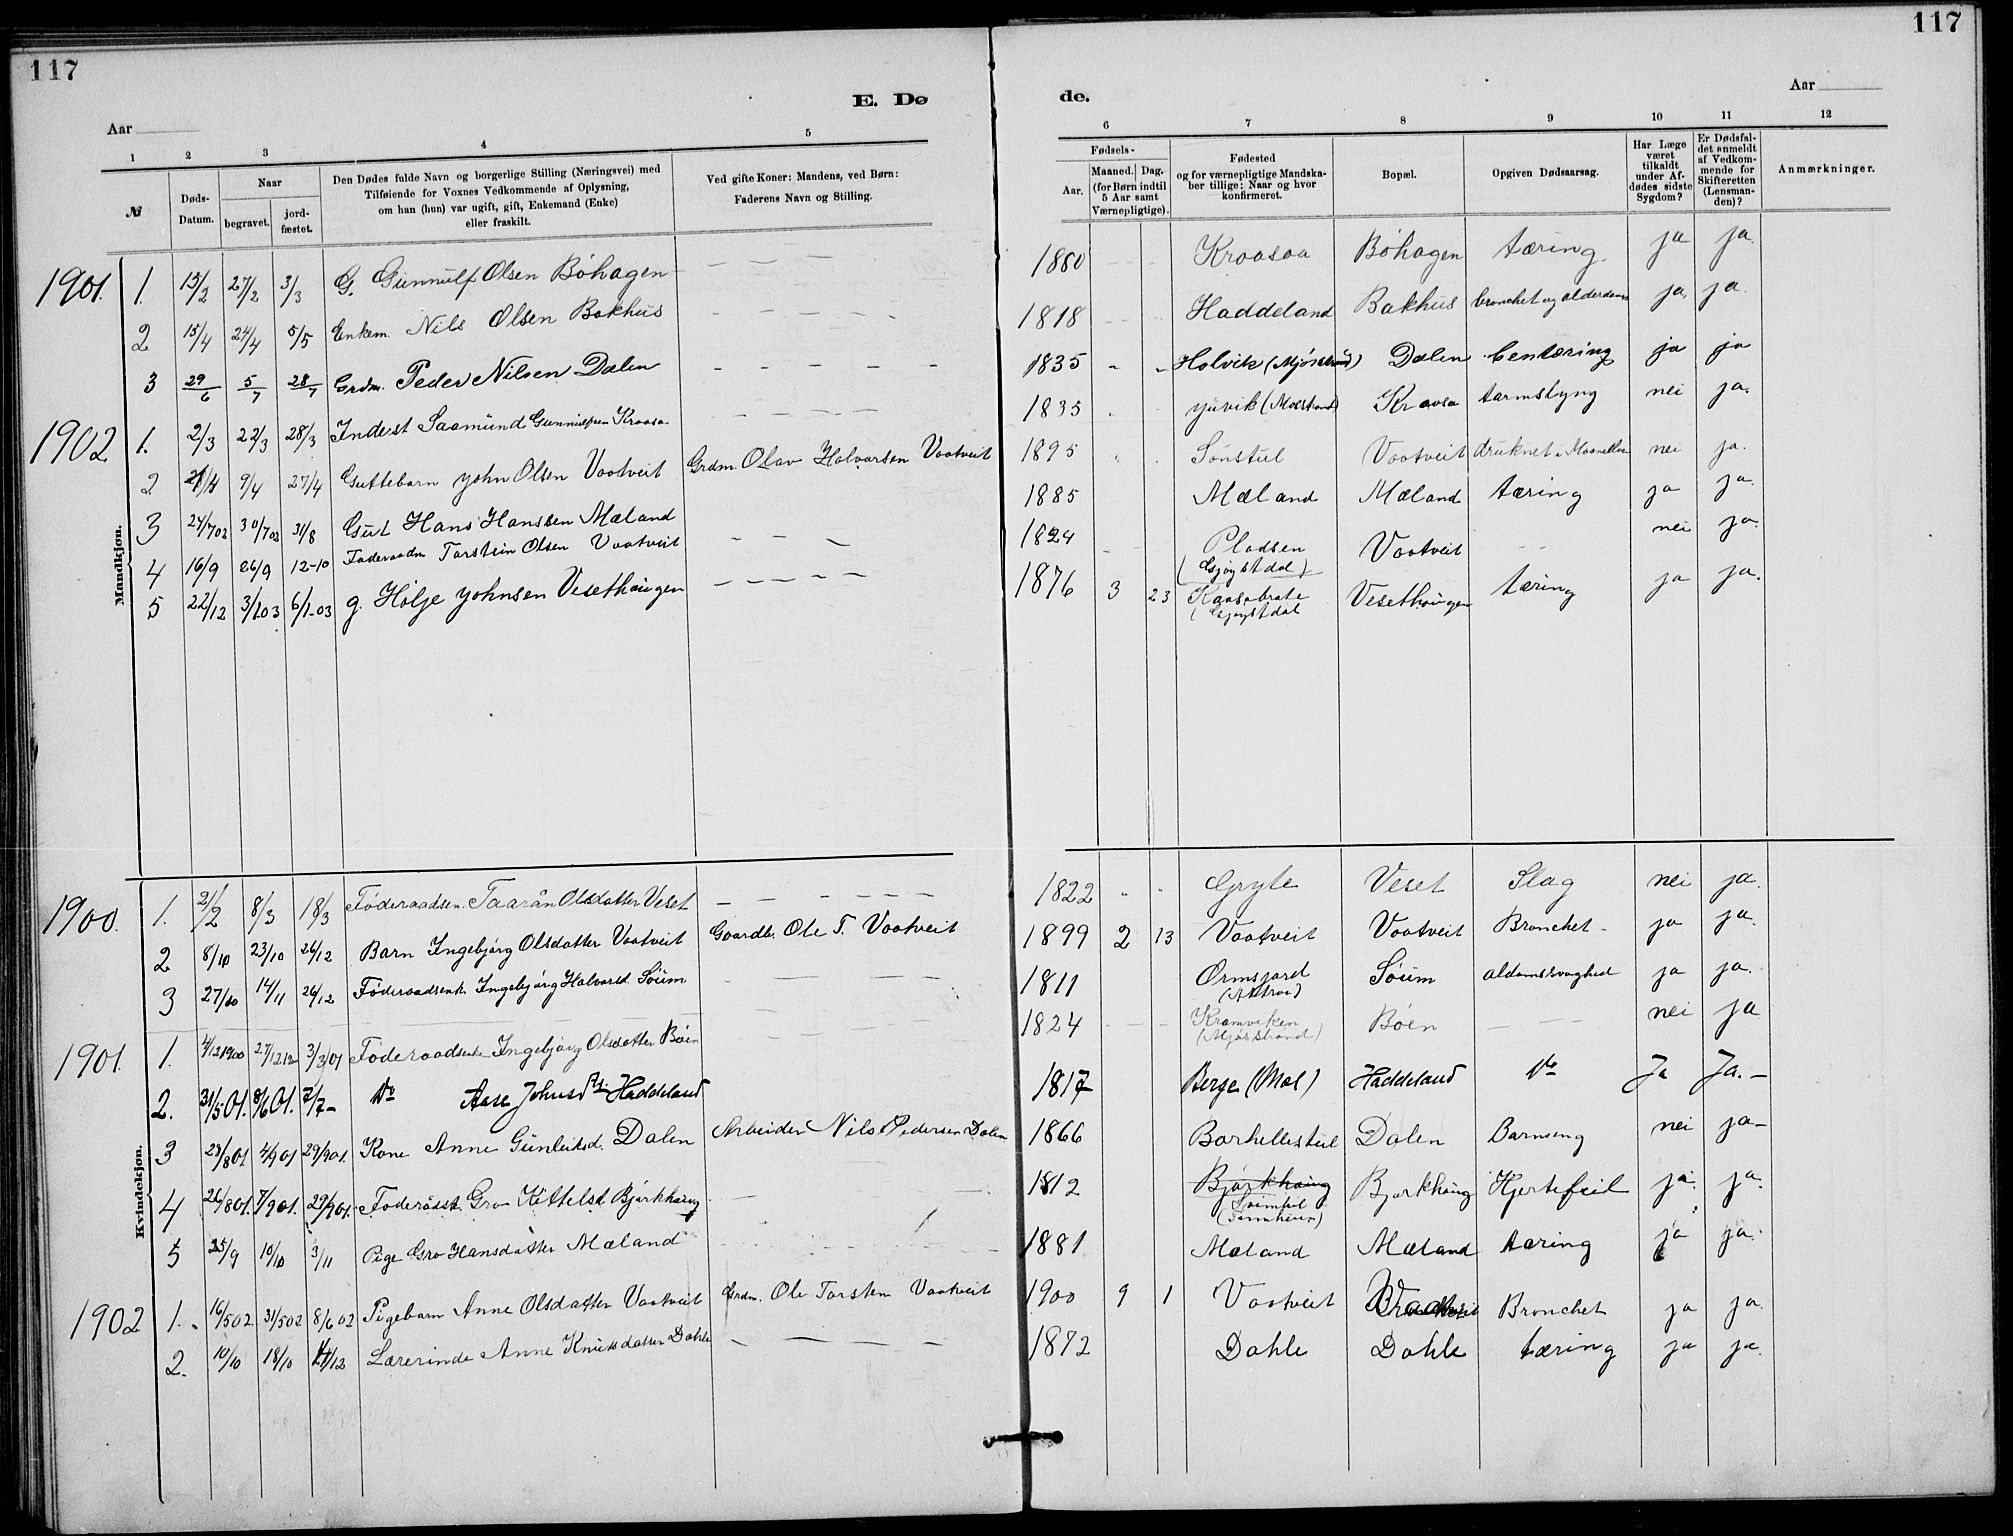 117
117
E. Dø
de.
Aar
Aar
1 2 3 4 5
6 7 8 9 10 11 12
№
Døds-Datum.
Naar
begravet.
jord-fæstet.
Den Dødes fulde Navn og borgerlige Stilling (Næringsvei) med
Tilføiende for Voxnes Vedkommende af Oplysning,
om han (hun) var ugift, gift, Enkemand (Enke)
eller fraskilt.
Ved gifte Koner: Mandens, ved Børn:
Faderens Navn og Stilling.
Fødsels-
Aar.
Maaned. Dag.
(for Børn indtil
5 Aar samt
Værnepligtige).
Fødested
og for værnepligtige Mandska-
ber tillige: Naar og hvor
konfirmeret.
Bopæl.
Opgiven Dødsaarsag.
Har Læge
været
tilkaldt
under Af-
dødes sidste
Sygdom?
Er Dødsfal-
det anmeldt
af Vedkom-
mende for
Skifteretten
(Lensman-
den)?
Anmærkninger.
Mandkjøn.
1901. 1. 15/2 27/2 3/3 G. Gunnulf Olsen Bøhagen — — — — 1880 — — Kraasaa Bøhagen tæring. ja ja.
2 15/4 24/4 5/5 Enkem. Nils Olsen Bakhus - - - - 1818 — Haddeland Bakhus bronchet og alderdoms ja, ja.
3 29/6 5/7 28/7 Grdm. Peder Nilsen Dalen - - - - - 1835 - - Holvik (Mjøsstrand) Dalen bentæring ja ja
1902 1. 2/3 22/3 28/3 Inderst Saamund Gunnulfsen Kraasa - - - - 1835 Juvik (Mosstrand) Kraasa tarmslyng nei ja.
2 9/4 27/4 Guttebarn John Olsen Vaatveit Grdm. Olav Halvorsen Vaatveit 1895 Sønstul Vaatveit druknet i nei ja.
3 24/702 30/702 31/8 Gut Hans Hanssen Mæland 1885 Mæland Mæland tæring ja ja.
4 16/9 26/9 12-10 Føderaadm Torstein Olsen Vaatveit - - - 1824 - - Pladsen Vaatveit - - nei ja.
5 22/12 3/103 6/1-03 g. Hølje Johnsen Vesethaugen - - - - - 1876 3 23 Vesethaugen tæring ja ja.
Kvindekjøn.
1900. 1. 21/2 8/3 18/3 Føderaadsen. Taarån Olsdatter Veset — — — — — 1822 " " Gryte Veset Slag nei ja.
2 8/10 23/10 26/12 Barn Ingebjørg Olsdatter Vaatveit Gaardbr. Ole T. Vaatveit 1899 2 13 Vaatveit Vaatveit Bronchet - ja ja.
3 27/10 14/11 26/12 Føderaadsenk. Ingebjørg Halvorsd. Søum - — — — 1811 Ormsjord Søum ja ja.
1901. 1. 4/121900 3/301 Føderaadsenke Ingebjørg Olsdatter Bøen - - - 1824 — - - Kromviken (Mjøsstrand) Bøen — — — nei ja
2. 31/501. 8/601. 7/7- Do Aase Johnsd. Haddeland 1817 Berge (Mol) Haddeland Do Ja Ja.-
3 28/801 4/901 29/901. Kone Anne Gunleiksd. Dalen Arbeider Nils Pedersen Dalen 1866 Barhellestul Dalen Barnseng nei ja-
4 26/801. 7/901. 29/901. Føderådst. Gro Kittelsd. Bjørkhaug - — — 1812 Bjørkhaug Bjørkhaug Hjertefeil ja. ja.
5 25/9 10/10 3/11 Pige Gro Hansdatter Mæland - - - - 1881 Mæland Mæland tæring ja ja.
1902 1. 16/502. 31/502 8/602 Pigebarn Anne Olsdatter Vaatveit Grdm. Ole Torsten Vaatveit 1900 9 1 Vaatveit Bronchet ja ja.
2. 10/10 18/10 Lærerinde Anne Knutsdatter Dahle — — — — 1872 Dahle Dahle tæring ja ja.